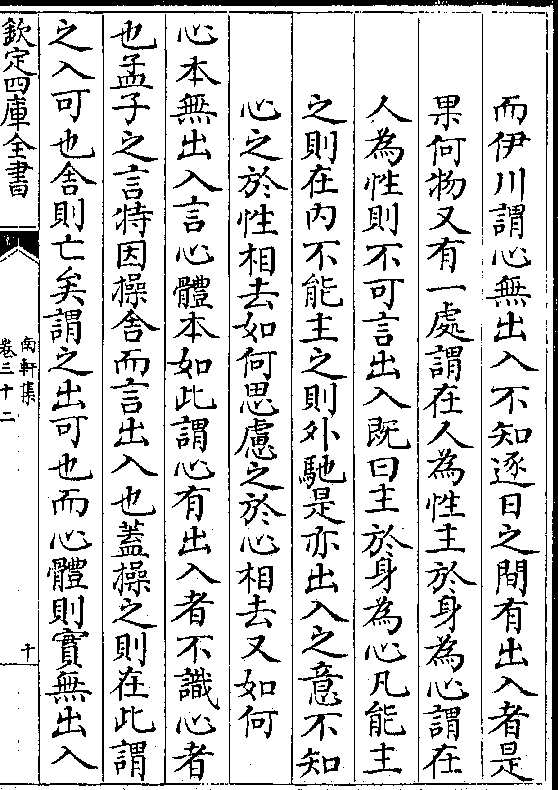 而伊川謂心無出入不知逐日之間有出入者是
果何物又有一處謂在人為性主於身為心謂在
人為性則不可言出入既曰主於身為心凡能主
之則在内不能主之則外馳是亦出入之意不知
心之於性相去如何思慮之於心相去又如何
心本無出入言心體本如此謂心有出入者不識心者
也孟子之言特因操舍而言出入也蓋操之則在此謂
之入可也舍則亡矣謂之出可也而心體則實無出入
欽定四庫全書
南軒集
卷三十二
十